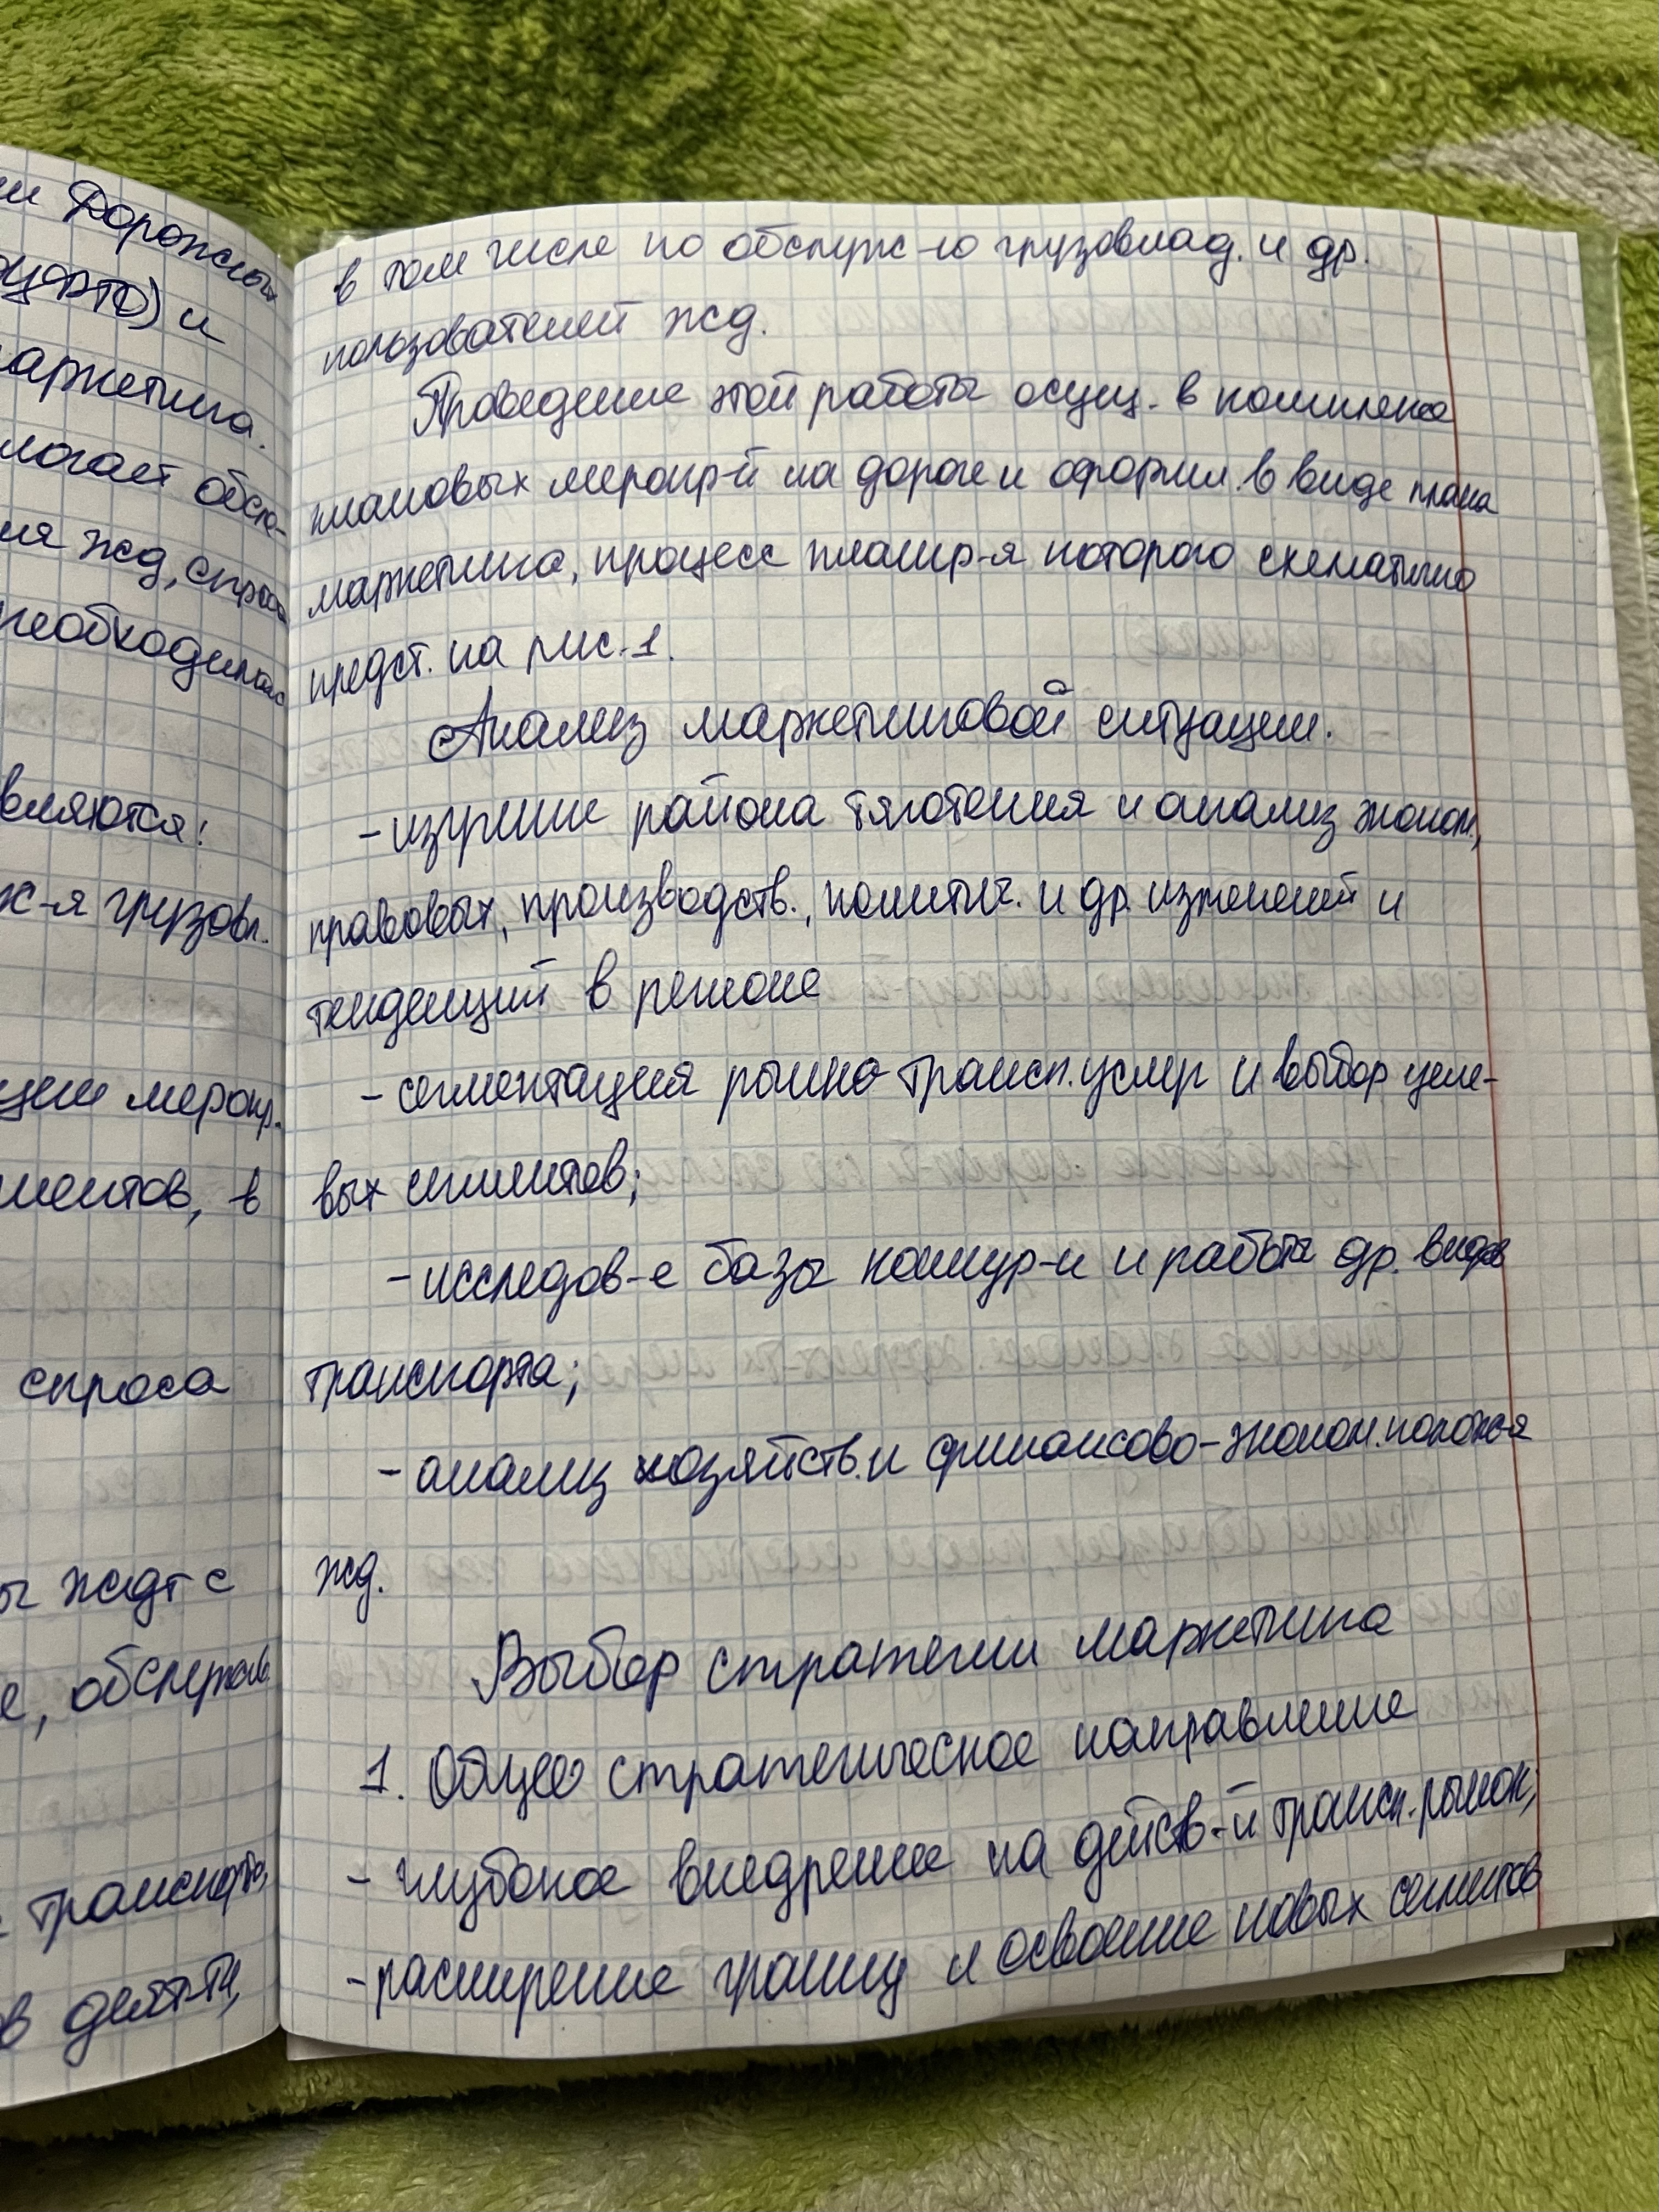 ии Дорожных
ЦФТО) и
маркетинга.
логает обсл-
ия жд, спроса
необходимос
вляются:
ж-я грузовл.
ции меропр.
ментов, в
спроса
ы ждт с
е, обслужив.
транспорта,
в деят-ти,
в том числе по обслуж-ю грузовлад. и др.
пользователей жд.
Проведение этой работы осущ. в комплексе
плановых меропр-й на дороге и оформл. в виде плана
маркетинга, процесс планир-я которого схематично
предст. на рис. 1.
Анализ маркетинговой ситуации.
- изучение района тяготения и анализ эконом.,
правовых, производств., политич. и др. изменений и
тенденций в регионе
- сегментация рынка трансп. услуг и выбор целе-
вых сегментов;
- исследов-е базы конкур-и и работы др. видов
транспорта;
- анализ хозяйств. и финансово-эконом. полож-я
жд.
Выбор стратегии маркетинга
1. Общее стратегическое направление
- глубокое внедрение на действ-й трансп. рынок;
- расширение границ и освоение новых сегментов